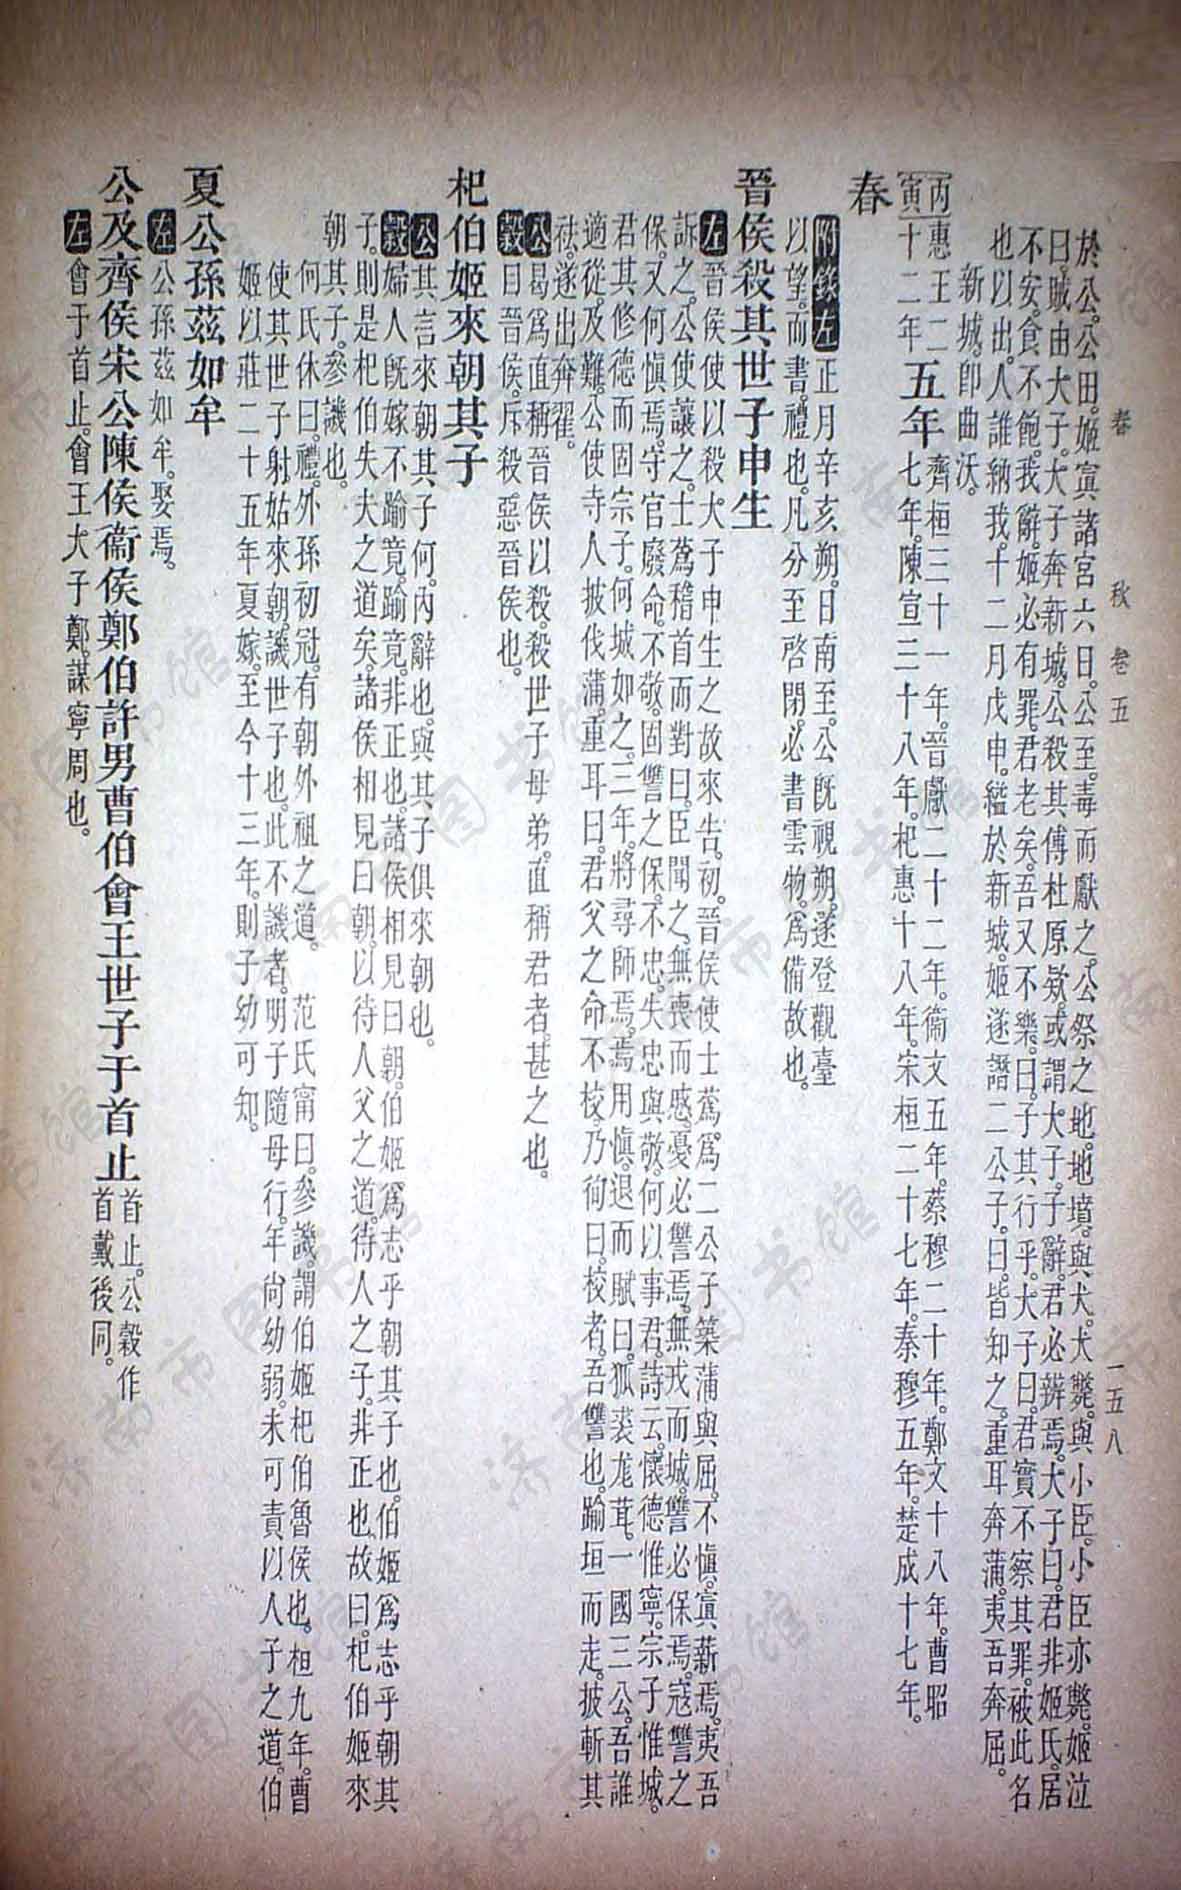 春秋 卷五 一五八
於公公田。姬寘諸宮六日。公至。毒而獻之。公祭之地。地墳。與犬。犬斃。與小臣。小臣亦斃。姬泣
曰。賊由大子。大子奔新城。公殺其傅杜原欵。或謂大子。子辭。君必辨焉。大子曰。君非姬氏。居
不安。食不飽。我辭。姬必有罪。君老矣。吾又不樂。曰。子其行乎。大子曰。君實不察其罪。被此名
也以出。人誰納我。十二月戊申。縊於新城。姬遂譖二公子。曰。皆知之。重耳奔蒲。夷吾奔屈。
新城。卽曲沃。
丙寅 惠王二十二年 五年 齊桓三十一年。晉獻二十二年。衞文五年。蔡穆二十年。鄭文十八年。曹昭七年。陳宣三十八年。杞惠十八年。宋桓二十七年。秦穆五年。楚成十七年。
春
附錄左 正月辛亥朔。日南至。公旣視朔。遂登觀臺
以望。而書。禮也。凡分至啓閉。必書雲物。爲備故也。
晉侯殺其世子申生
左 晉侯使以殺大子申生之故來告。初。晉侯使士蔿爲二公子築蒲與屈。不愼。寘薪焉。夷吾
訴之。公使讓之。士蔿稽首而對曰。臣聞之。無喪而慼。憂必讐焉。無戎而城。讐必保焉。寇讐之
保。又何愼焉。守官廢命。不敬。固讐之保。不忠。失忠與敬。何以事君。詩云。懷德惟寧。宗子惟城。
君其修德而固宗子。何城如之。三年將尋師焉。焉用愼。退而賦曰。狐裘尨茸。一國三公。吾誰
適從。及難。公使寺人披伐蒲。重耳曰。君父之命不校。乃徇曰。校者。吾讐也。踰垣而走。披斬其
袪。遂出奔翟。
公 曷爲直稱晉侯以殺。殺世子母弟。直稱君者。甚之也。
穀 目晉侯。斥殺。惡晉侯也。
杞伯姬來朝其子
公 其言來朝其子何。內辭也。與其子俱來朝也。
穀 婦人旣嫁不踰竟。踰竟。非正也。諸侯相見曰朝。伯姬爲志乎朝其子也。伯姬爲志乎朝其
子。則是杞伯失夫之道矣。諸侯相見曰朝。以待人父之道。待人之子。非正也。故曰。杞伯姬來
朝其子。參譏也。
何氏休曰。禮。外孫初冠。有朝外祖之道。 范氏甯曰。參譏。謂伯姬杞伯魯侯也。桓九年。曹
伯使其世子射姑來朝。譏世子也。此不譏者。明子隨母行。年尚幼弱。未可責以人子之道。伯
姬以莊二十五年夏嫁。至今十三年。則子幼可知。
夏公孫茲如牟
左 公孫茲如牟。娶焉。
公及齊侯宋公陳侯衞侯鄭伯許男曹伯會王世子于首止 首止。公穀作首戴。後同。
左 會于首止。會王大子鄭。謀寧周也。